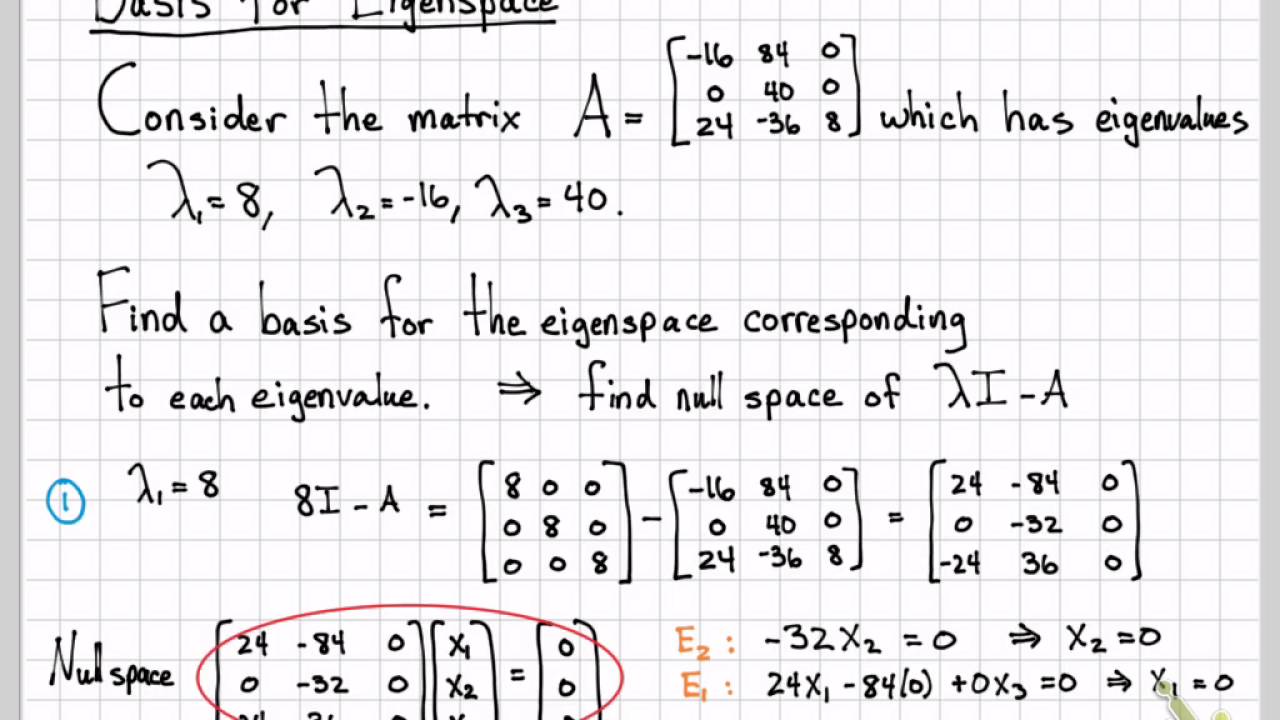 Basis for Eigenspace
Consider the matrix A = [-16 84 0; 0 40 0; 24 -36 8] which has eigenvalues
λ₁ = 8, λ₂ = -16, λ₃ = 40.
Find a basis for the eigenspace corresponding
to each eigenvalue. ⇒ find null space of λI - A
① λ₁ = 8 8I - A = [8 0 0; 0 8 0; 0 0 8] - [-16 84 0; 0 40 0; 24 -36 8] = [24 -84 0; 0 -32 0; -24 36 0]
Null space [24 -84 0; 0 -32 0; [x₁; x₂; = [0; 0;
E₂: -32x₂ = 0 ⇒ x₂ = 0
E₁: 24x₁ - 84(0) + 0x₃ = 0 ⇒ x₁ = 0